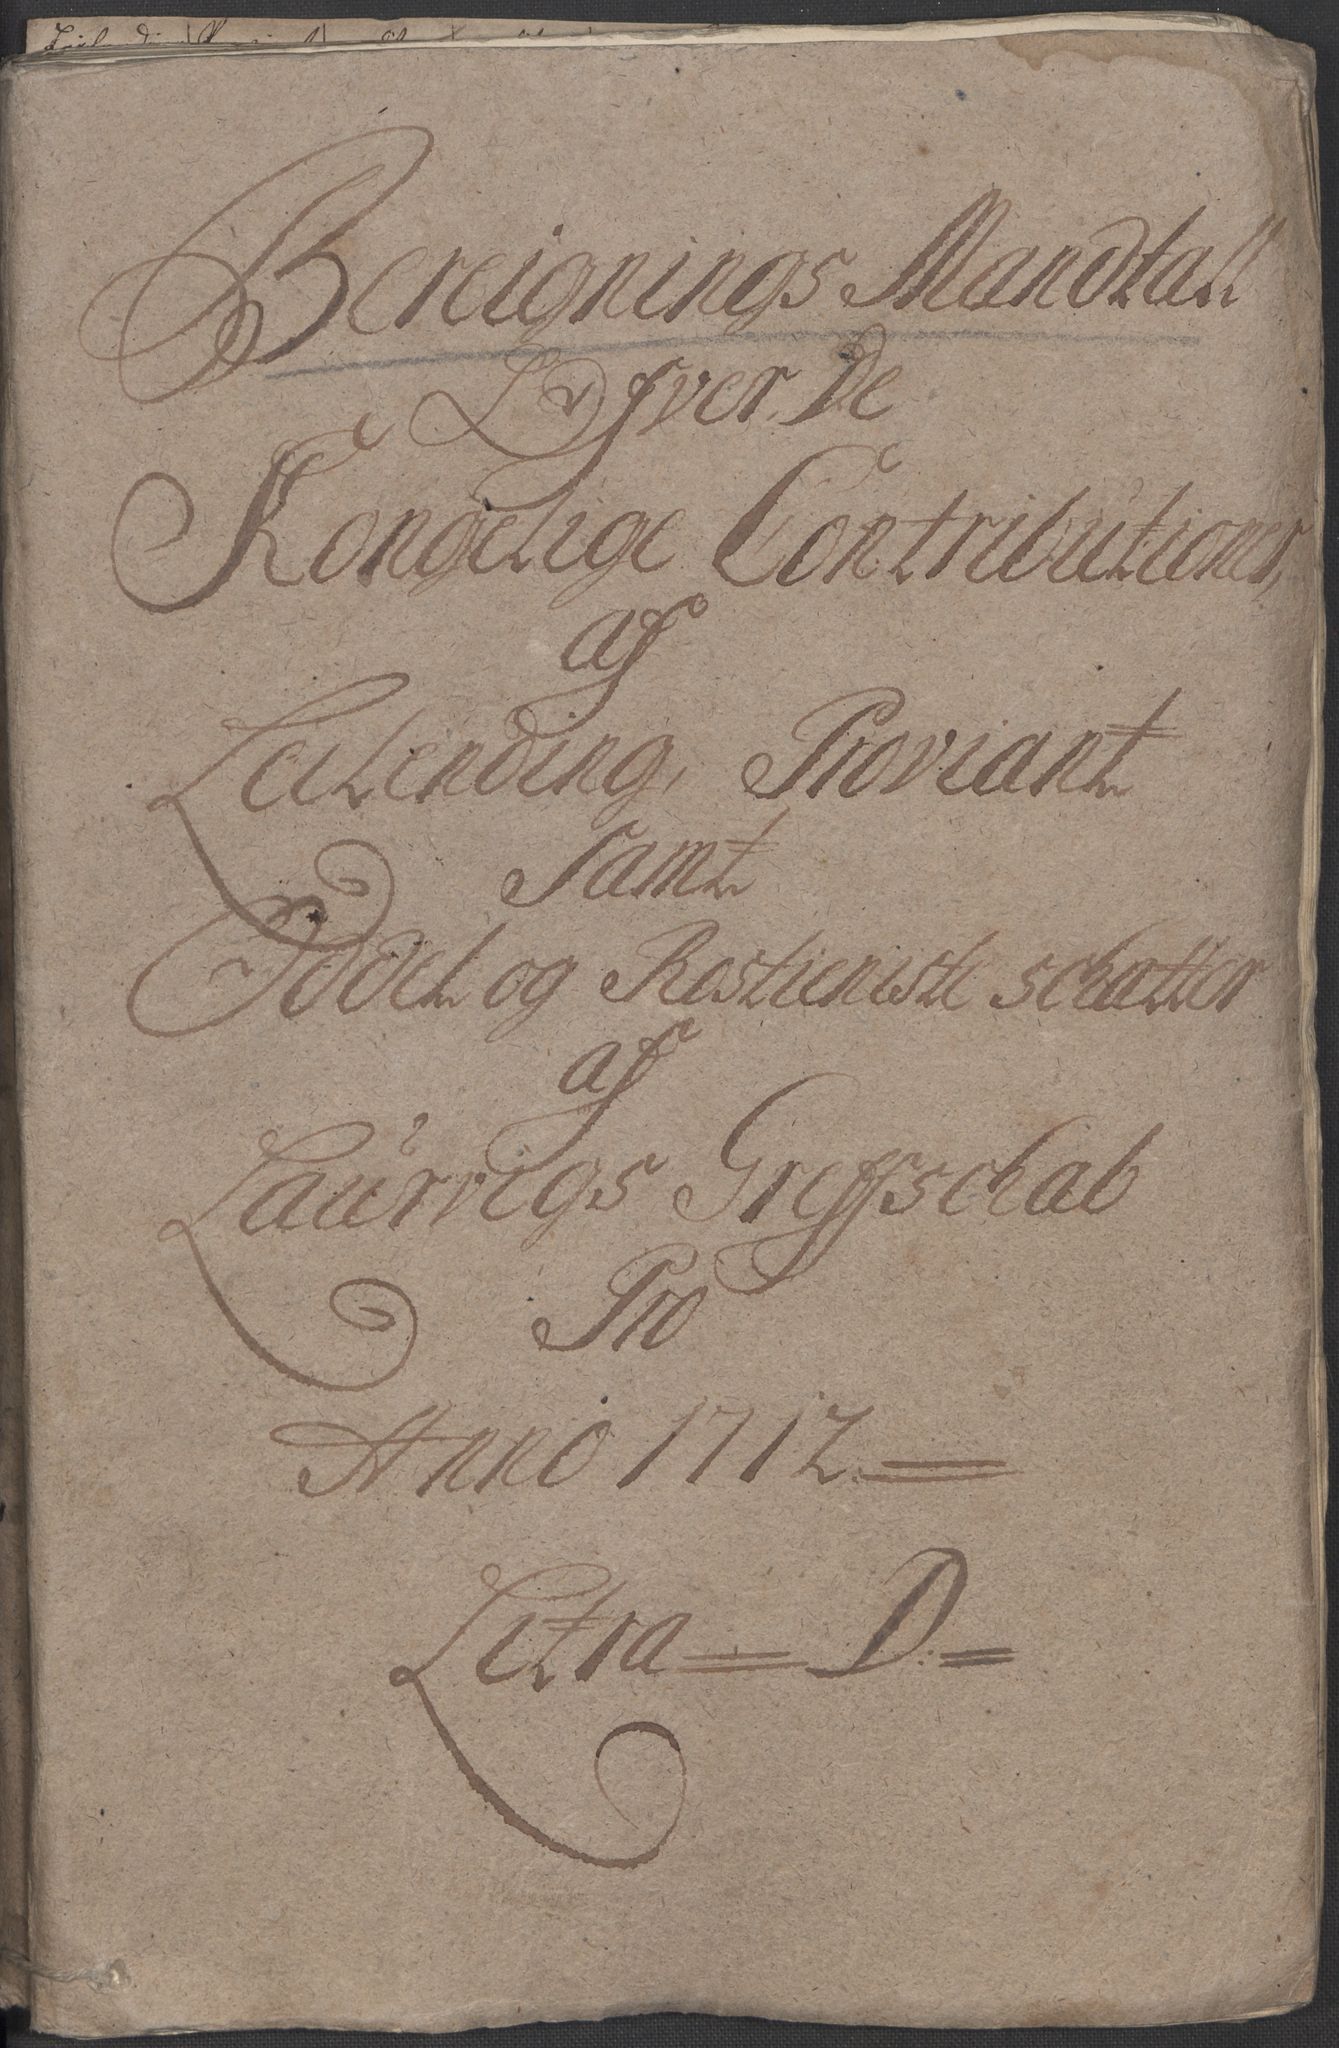 Bereignings Mandtall
Ofver De
Kongelige Contributioner,
af
Leilending, Proviant
samt
Oddel og Rostieniste schatter
af
Laurvigs Greffschab
Pro
Anno 1712
Litra D